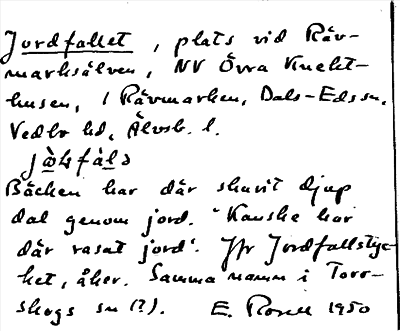 Jordfallet, plats vid Räv-
marksälven, NV Övra Knekt-
husen, i Rävmarken, Dals-Eds sn,
Vedbo hd, Älvsb. l.
Bäcken har där skurit djup
dal genom jord. "Kanske har
där rasat jord". Jfr Jordfallstyc-
ket, åker. Samma namn i Torr-
skogs sn (?). E. Rosell 1950